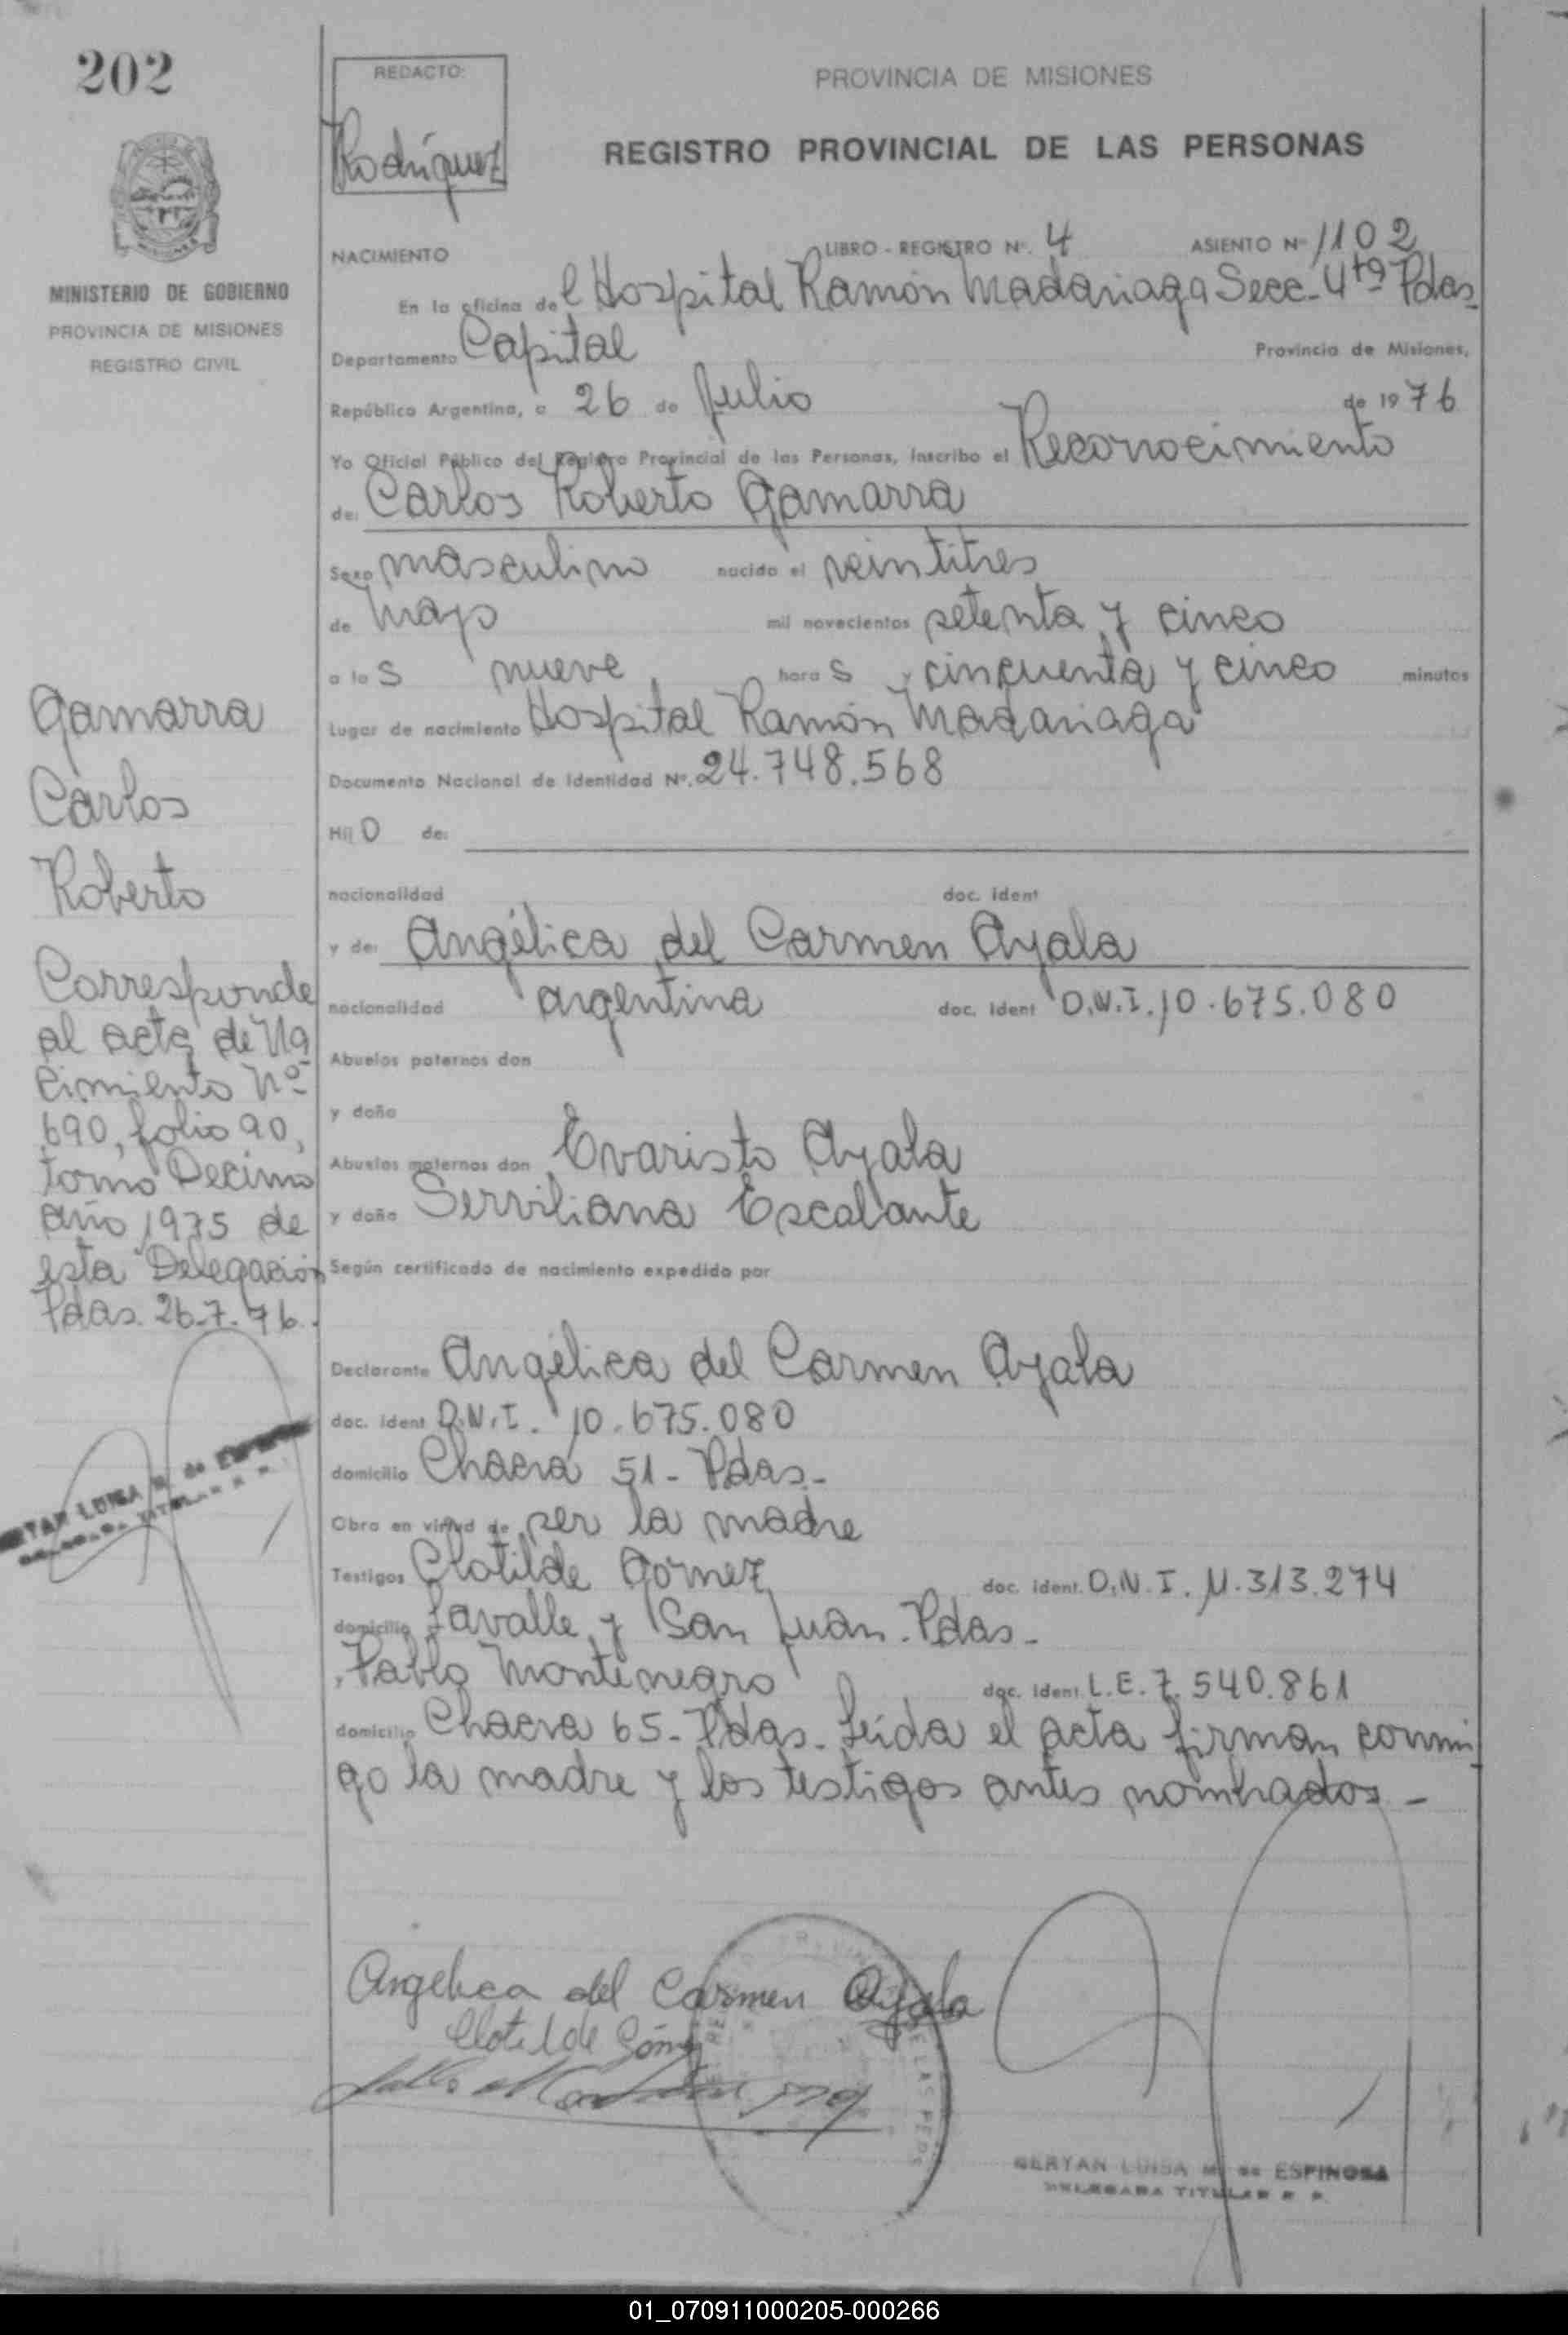 202
REDACTO:
Rodríguez
PROVINCIA DE MISIONES
REGISTRO PROVINCIAL DE LAS PERSONAS
MINISTERIO DE GOBIERNO
PROVINCIA DE MISIONES
REGISTRO CIVIL
NACIMIENTO LIBRO - REGISTRO Nº. 4 ASIENTO Nº 1102
En la oficina del Hospital Ramón Madariaga Secc. 4ta Pdas.
Departamento Capital Provincia de Misiones,
República Argentina, a 26 de Julio de 1976
Yo Oficial Público del Registro Provincial de las Personas, inscribo el Reconocimiento
de: Carlos Roberto Gamarra
Sexo masculino nacido el veintitres
de Mayo mil novecientos setenta y cinco
a las nueve horas y cincuenta y cinco minutos
Lugar de nacimiento Hospital Ramón Madariaga
Documento Nacional de Identidad Nº. 24.748.568
Hijo de:
nacionalidad doc. ident
y de: Angélica del Carmen Ayala
nacionalidad argentina doc. ident D.N.I. 10.675.080
Abuelos paternos don
y doña
Abuelos maternos don Evaristo Ayala
y doña Serviliana Escalante
Según certificado de nacimiento expedido por
Declarante Angélica del Carmen Ayala
doc. ident D.N.I. 10.675.080
domicilio Chacra 51 - Pdas.-
Obra en virtud de ser la madre
Testigos Clotilde Gómez doc. ident. D.N.I. 11.313.274
domicilio Lavalle y San Juan. Pdas -
Pablo Montenegro doc. ident. L.E. 7.540.861
domicilio Chacra 65 - Pdas - Leída el acta firman conmi
go la madre y los testigos antes nombrados -
Gamarra
Carlos
Roberto
Corresponde
al acta de Na
cimiento Nº
690, folio 90,
tomo Decimo
año 1975 de
esta Delegación
Pdas. 26-7-76.
LUISA M. de ESPINOSA
TITULAR R. P.
Angelica del Carmen Ayala
Clotilde Góm
LAS PERS
LUISA M. de ESPINOSA
DELEGADA TITULAR R. P.
01_070911000205-000266